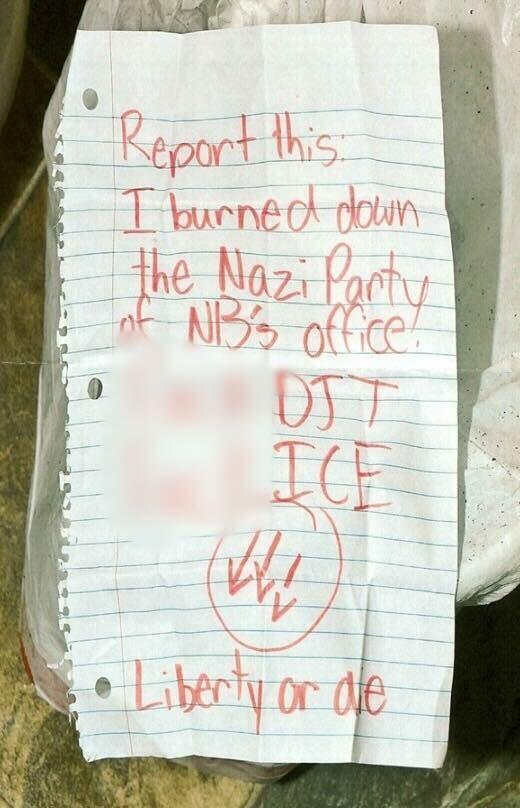 Report this:
I burned down
the Nazi Party
of NB's office!
DJT
ICE
Liberty or die